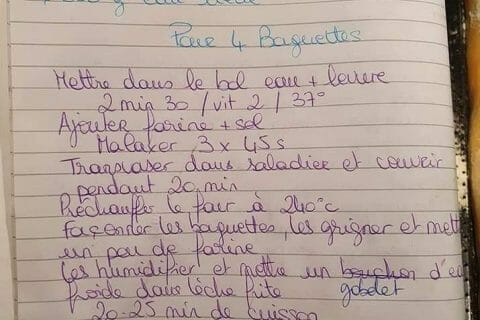 g eau tiède
Pour 4 Baguettes
Mettre dans le bol eau + levure
2 min 30 / vit 2 / 37°
Ajouter farine + sel
Malaxer 3 x 45s
Transvaser dans saladier et couvrir
pendant 20 min
Préchauffer le four à 240°c
Façonner les baguettes, les grigner et mett
un peu de farine
les humidifier et mettre un bouchon d'ea
froide dans lèche frite gobelet
20-25 min de cuisson